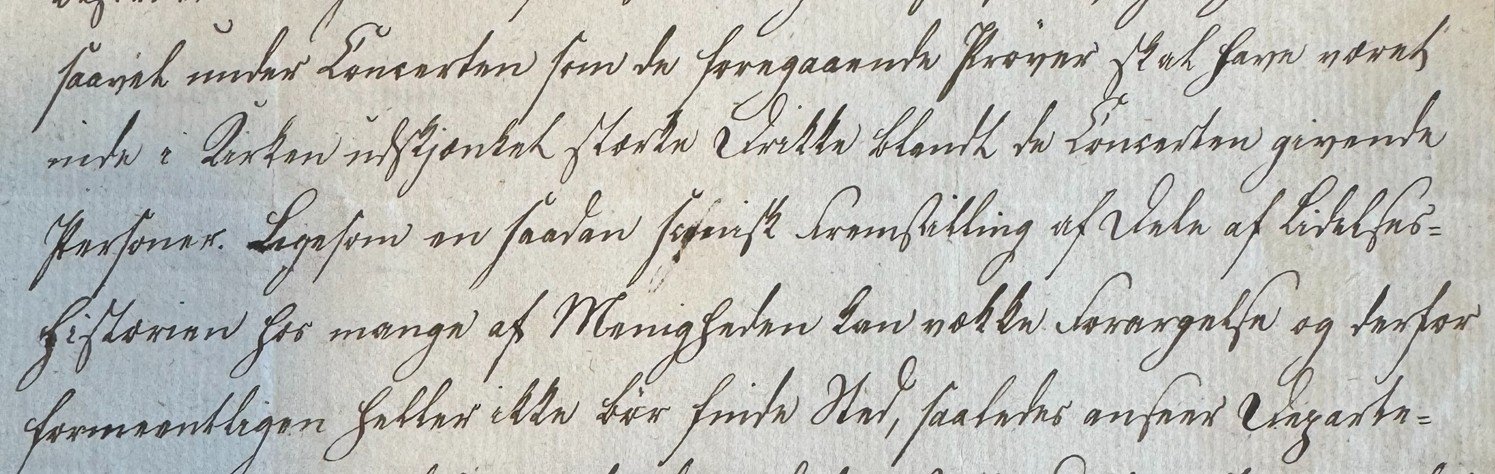 saavel under Concerten som de foregaaende Prøver skal have været
inde i Kirken udskjænket stærke Drikke blandt de Concerten givende
Personer. Ligesom en saadan scenisk Fremstilling af Dele af Lidelses=
historien hos mange af Menigheden kan vække Forargelse og derfor
formeentligen heller ikke bør finde Sted, saaledes anseer Departe=